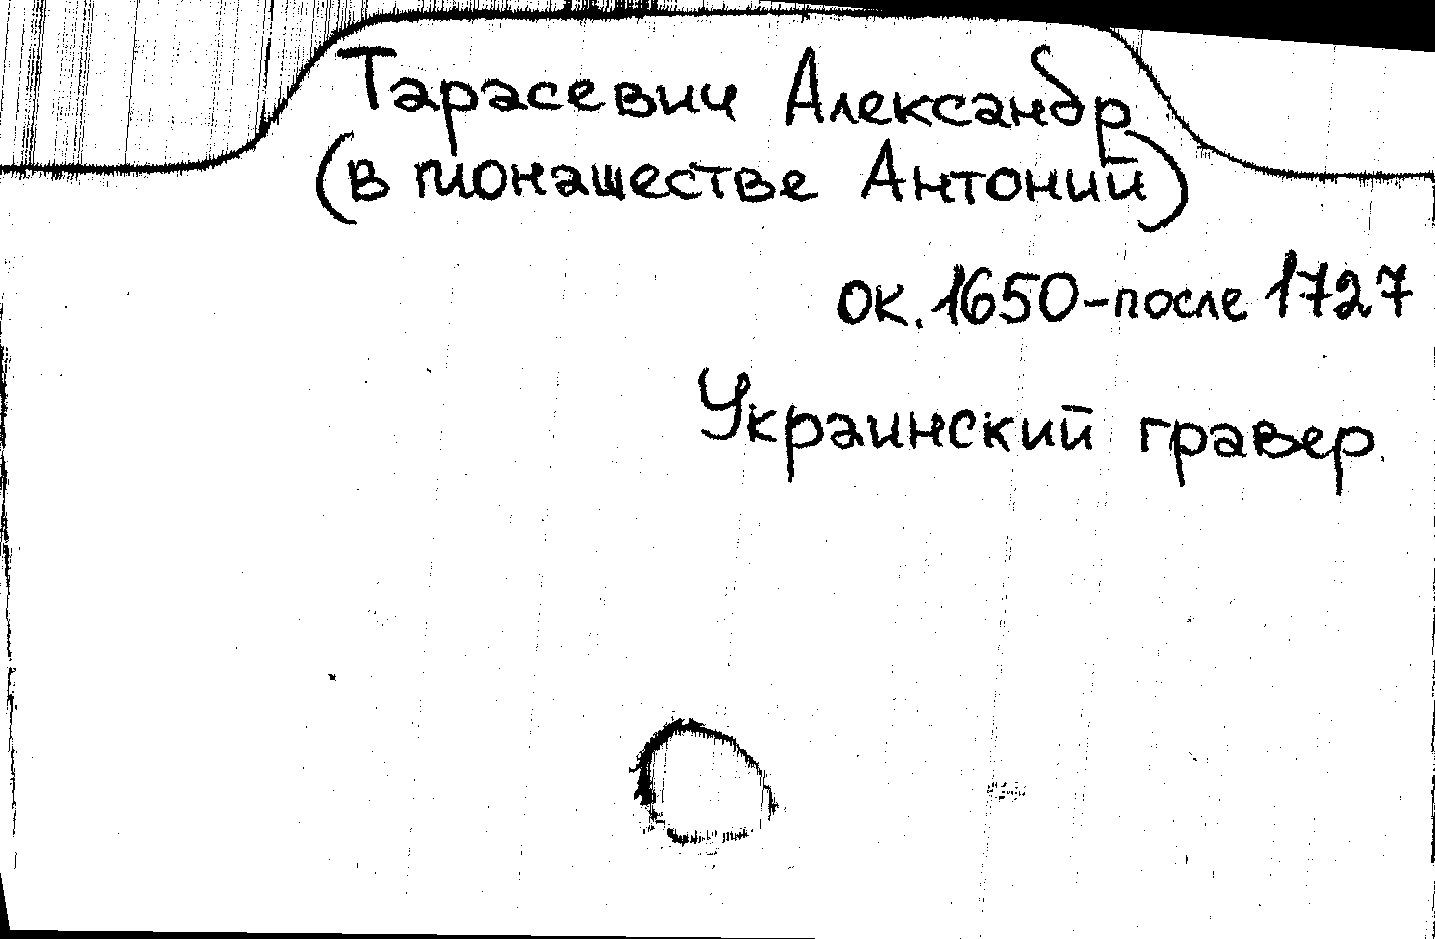 Тарасевич Александр
(в монашестве Антоний)
ок. 1650-после 1727
Украинский гравер.